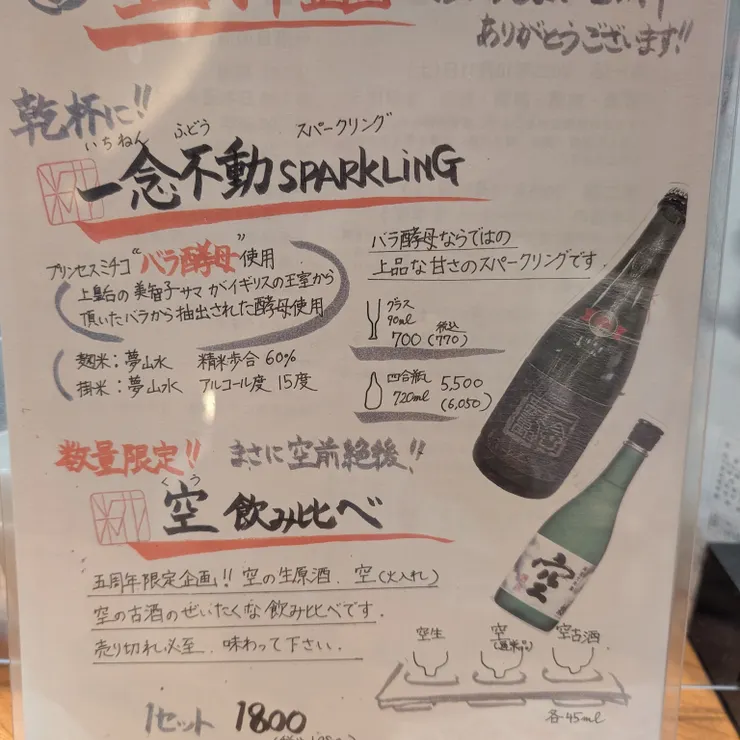 ありがとうございます!!
乾杯に!!
いちねん ふどう スパークリング
一念不動SPARKLiNG
プリンセスミチコ"バラ酵母"使用
上皇后の美智子サマがイギリスの王室から
頂いたバラから抽出された酵母使用
麹米:夢山水 精米歩合 60%
掛米:夢山水 アルコール度 15度
バラ酵母ならではの
上品な甘さのスパークリングです.
グラス
90ml
700 税込(770)
四合瓶
720ml
5,500
(6,050)
数量限定!! まさに空前絶後!!
くう
空 飲み比べ
五周年限定企画!! 空の生原酒、空(火入れ)
空の古酒のぜいたくな飲み比べです.
売り切れ必至、味わって下さい.
空
空生 空 空古酒
各45ml
1セット 1800